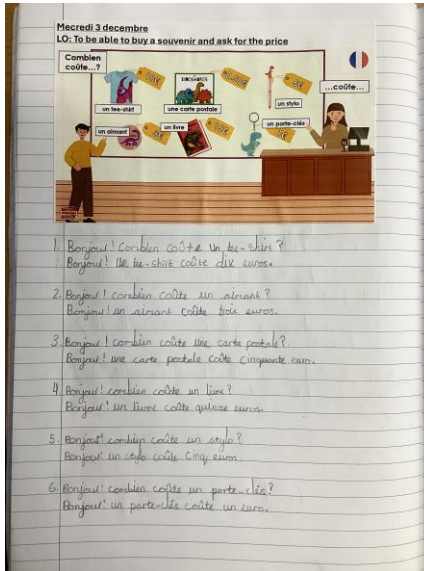 Mecredi 3 decembre
LO: To be able to buy a souvenir and ask for the price
Combien coûte...?
...coûte...
un tee-shirt
une carte postale
un stylo
un aimant
un livre
un porte-clés
1. Bonjour! Combien coûte un tee-shirt?
Bonjour! Un tee-shirt coûte dix euros.
2. Bonjour! combien coûte un aimant?
Bonjour! un aimant coûte trois euros.
3. Bonjour! combien coûte une carte postale?
Bonjour! une carte postale coûte cinquante euro.
4. Bonjour! combien coûte un livre?
Bonjour! un livre coûte quinze euros.
5. Bonjour! combien coûte un stylo?
Bonjour! un stylo coûte cinq euros.
6. Bonjour! combien coûte un porte-clés?
Bonjour! un porte-clés coûte un euro.